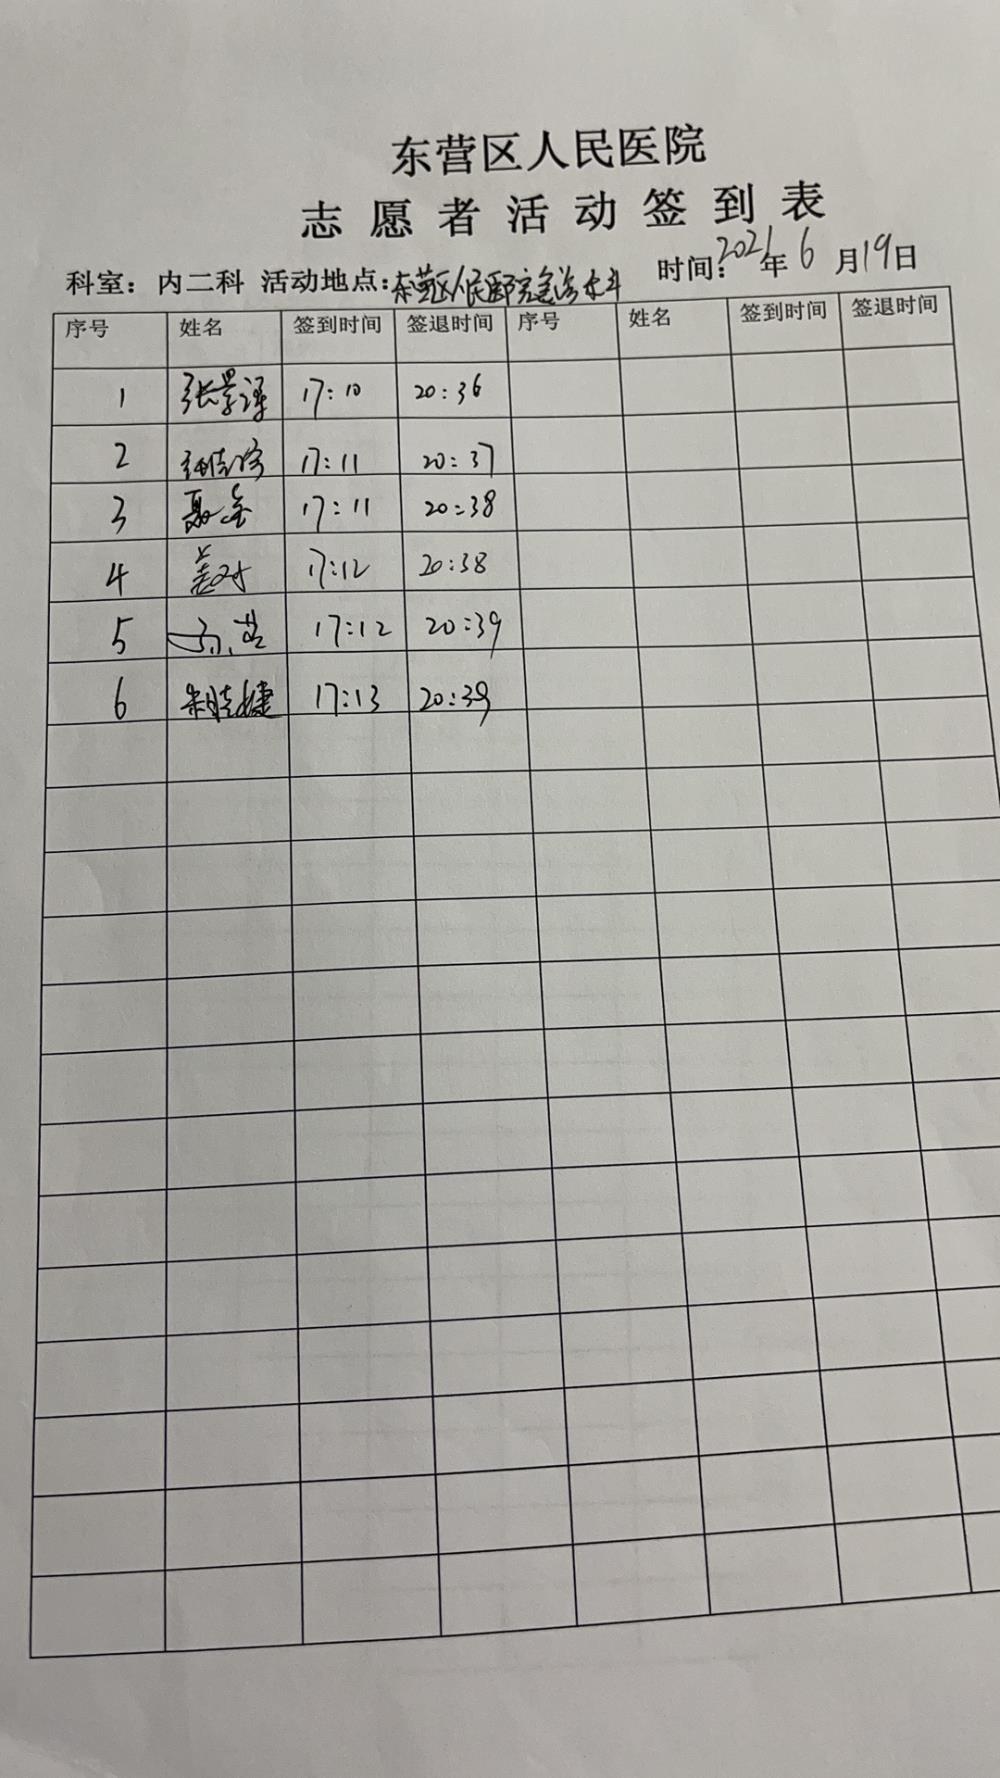 东营区人民医院
志愿者活动签到表
科室：内二科 活动地点：东营区人民医院急诊 时间：2021年6月19日
序号 姓名 签到时间 签退时间 序号 姓名 签到时间 签退时间
1 17:10 20:36
2 17:11 20:37
3 17:11 20:38
4 17:12 20:38
5 17:12 20:39
6 朱晓婕 17:13 20:39